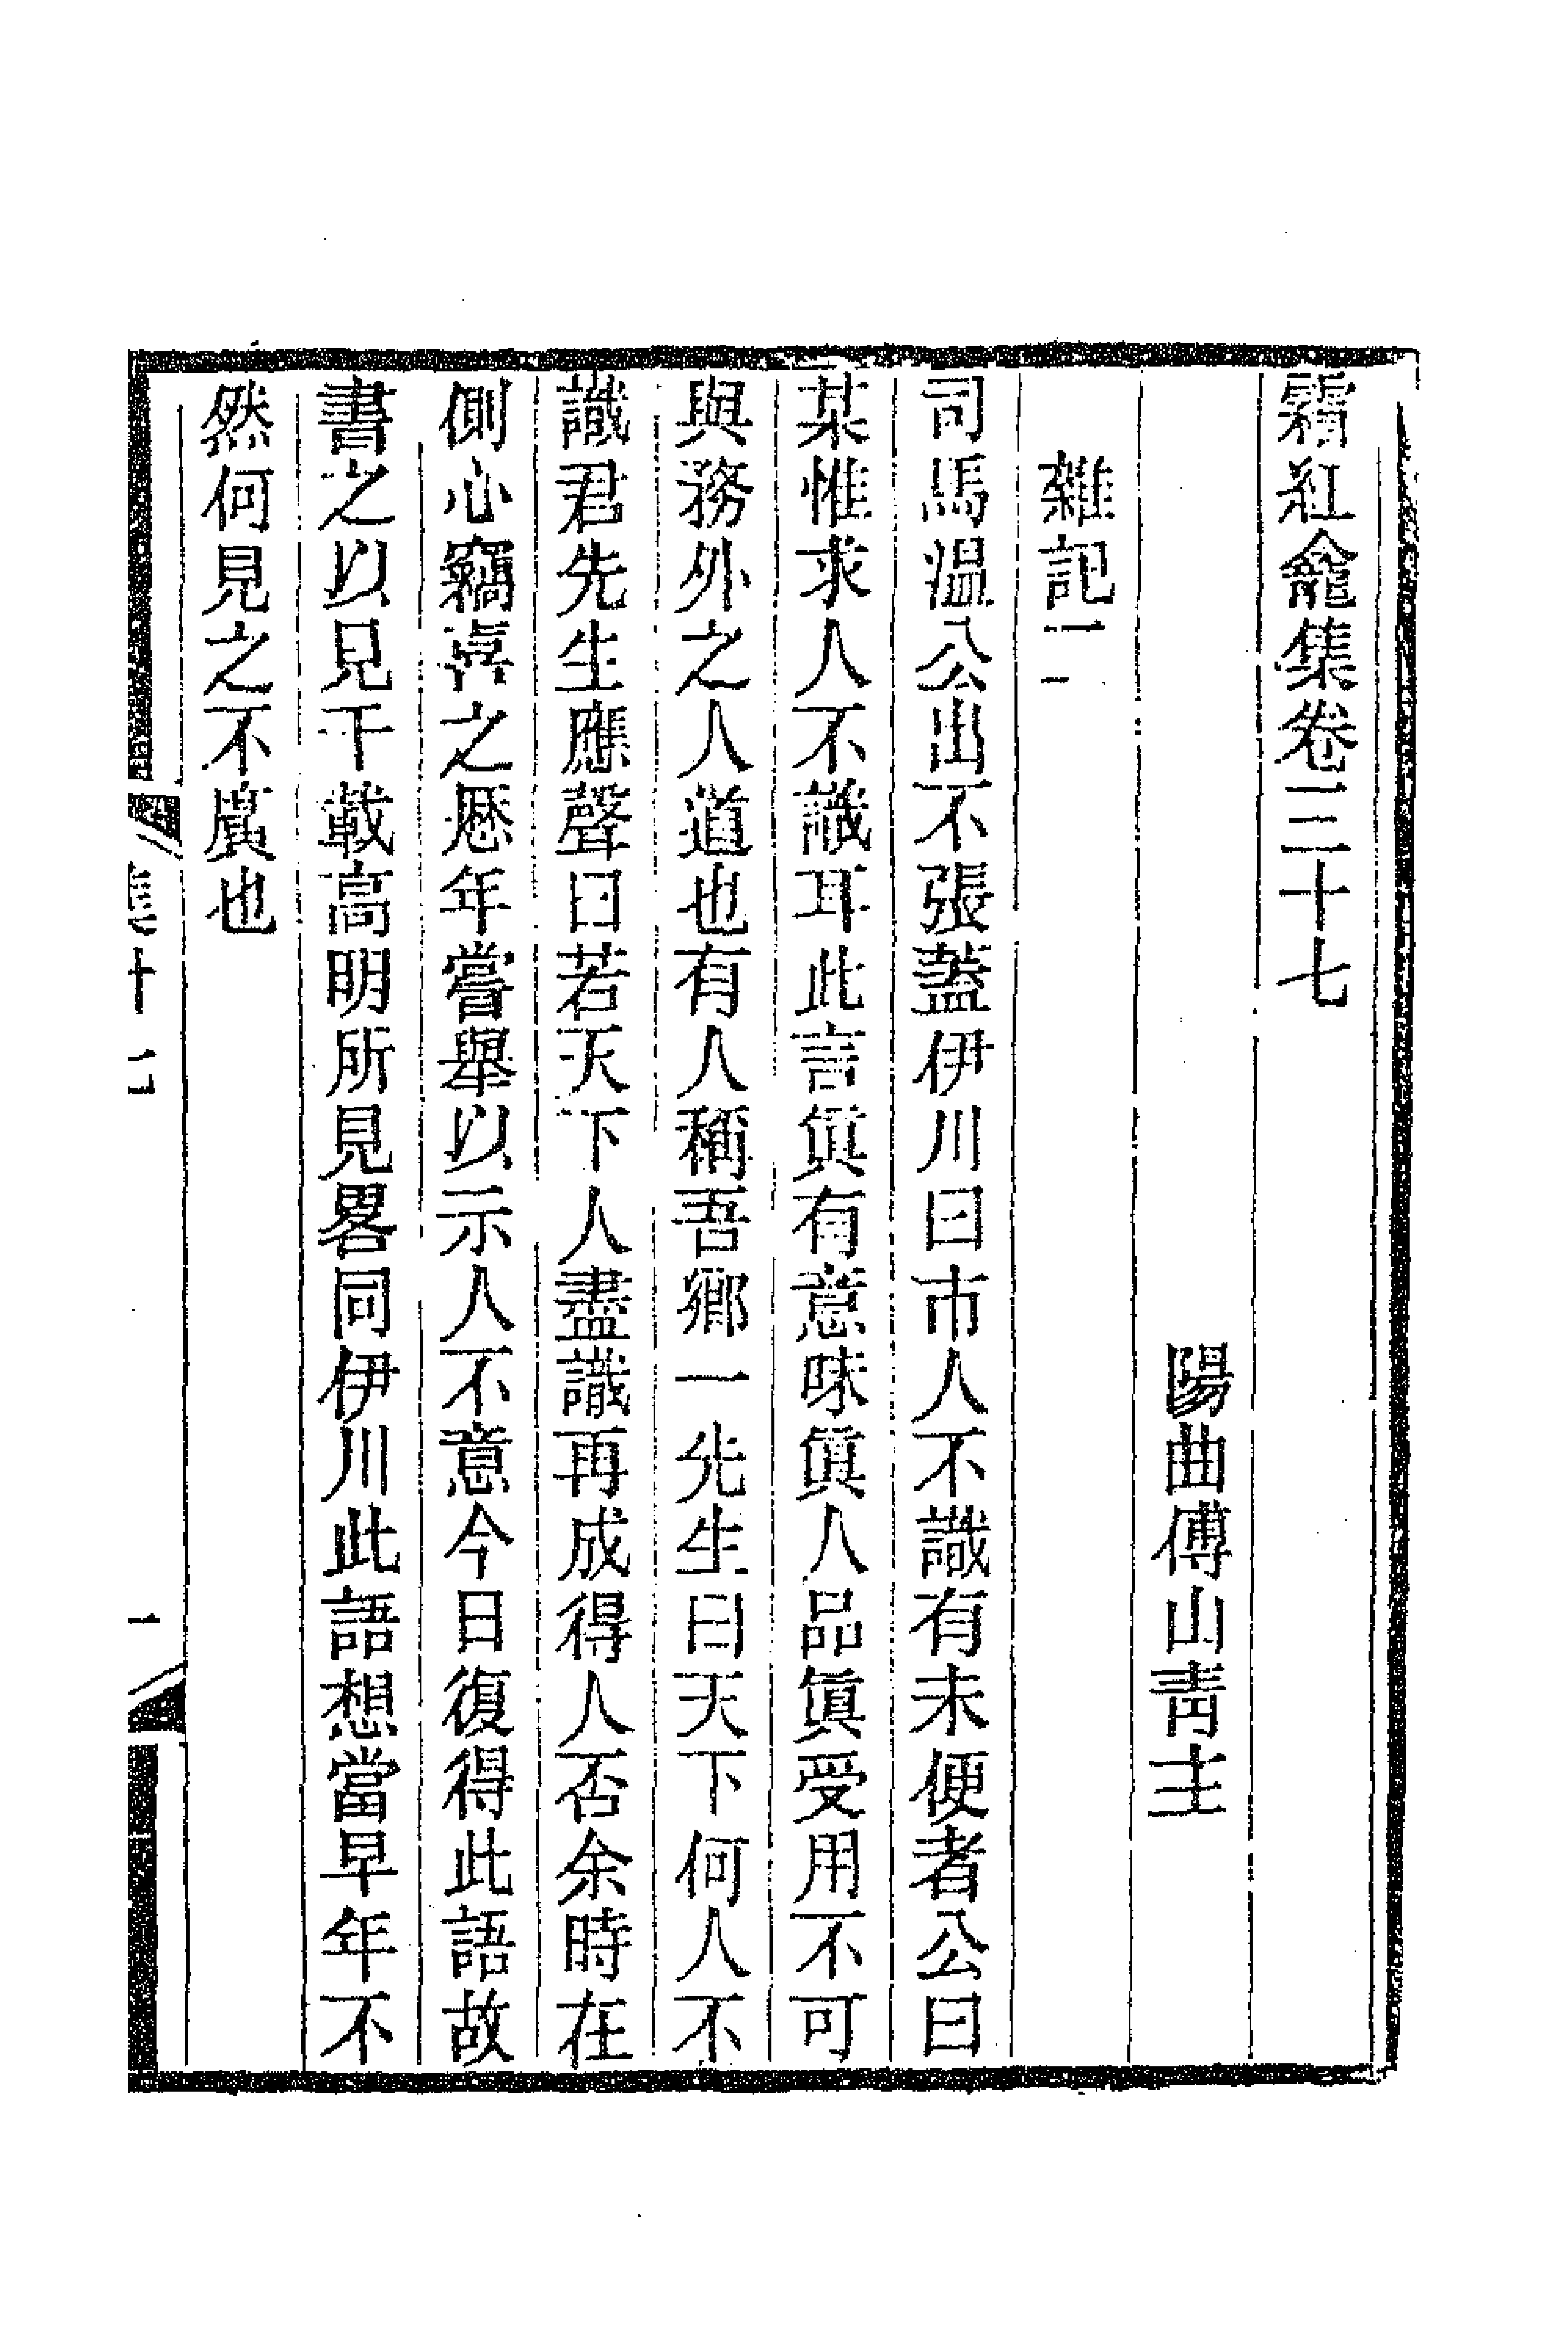 霜紅龕集卷三十七
陽曲傅山靑主
雜記二
司馬溫公出不張蓋伊川曰市人不識有未便者公曰
某惟求人不識耳此言眞有意味眞人品眞受用不可
與務外之人道也有人稱吾鄉一先生曰天下何人不
識君先生應聲曰若天下人盡識再成得人否余時在
側心竊喜之歷年嘗舉以示人不意今日復得此語故
書之以見千載高明所見畧同伊川此語想當早年不
然何見之不廣也